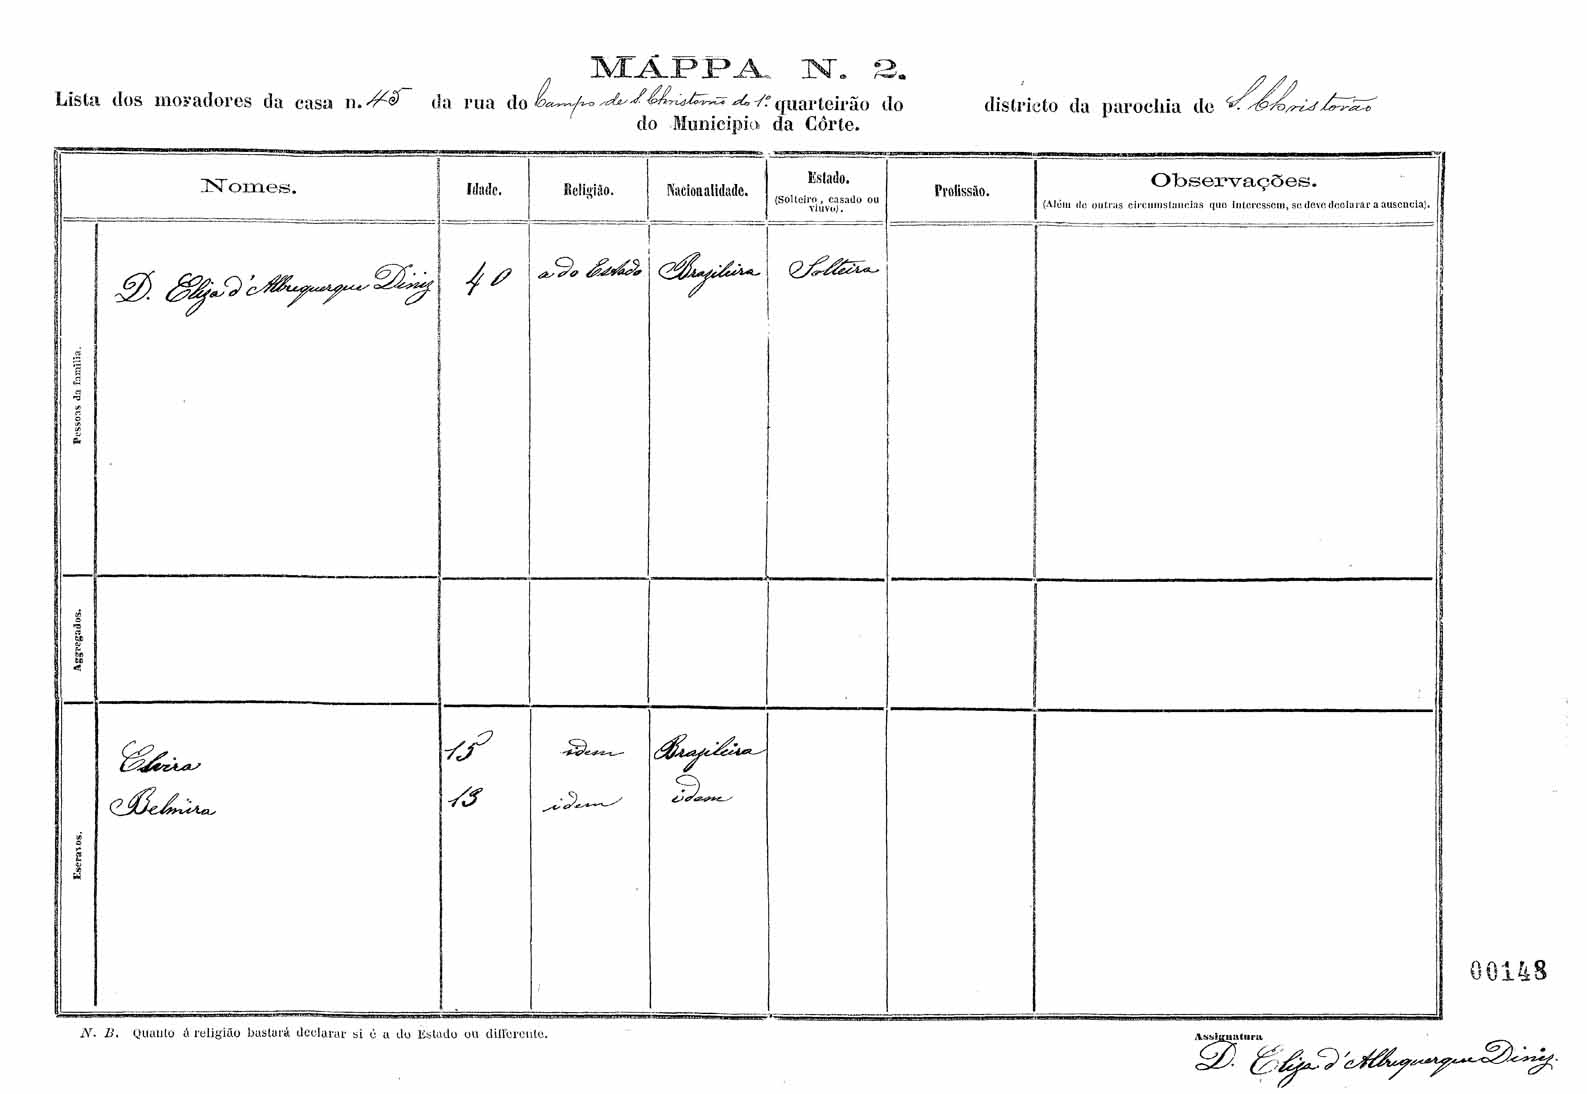 MAPPA N. 2.
Lista dos moradores da casa n. 45 da rua do Campo de S. Christovão do 1.º quarteirão do districto da parochia de S. Christovão
do Municipio da Côrte.
Nomes. Idade. Religião. Nacionalidade. Estado. Profissão. Observações.
(Solteiro, casado ou viuvo). (Além de outras circumstancias que interessem, se deve declarar a ausencia).
Pessoas da familia.
D. Eliza d'Albuquerque Diniz 40 a do Estado Brazileira Solteira
Aggregados.
Escravos.
Elvira 15 idem Brazileira
Belmira 13 idem idem
00148
N. B. Quanto á religião bastará declarar si é a do Estado ou differente.
Assignatura
D. Eliza d'Albuquerque Diniz.